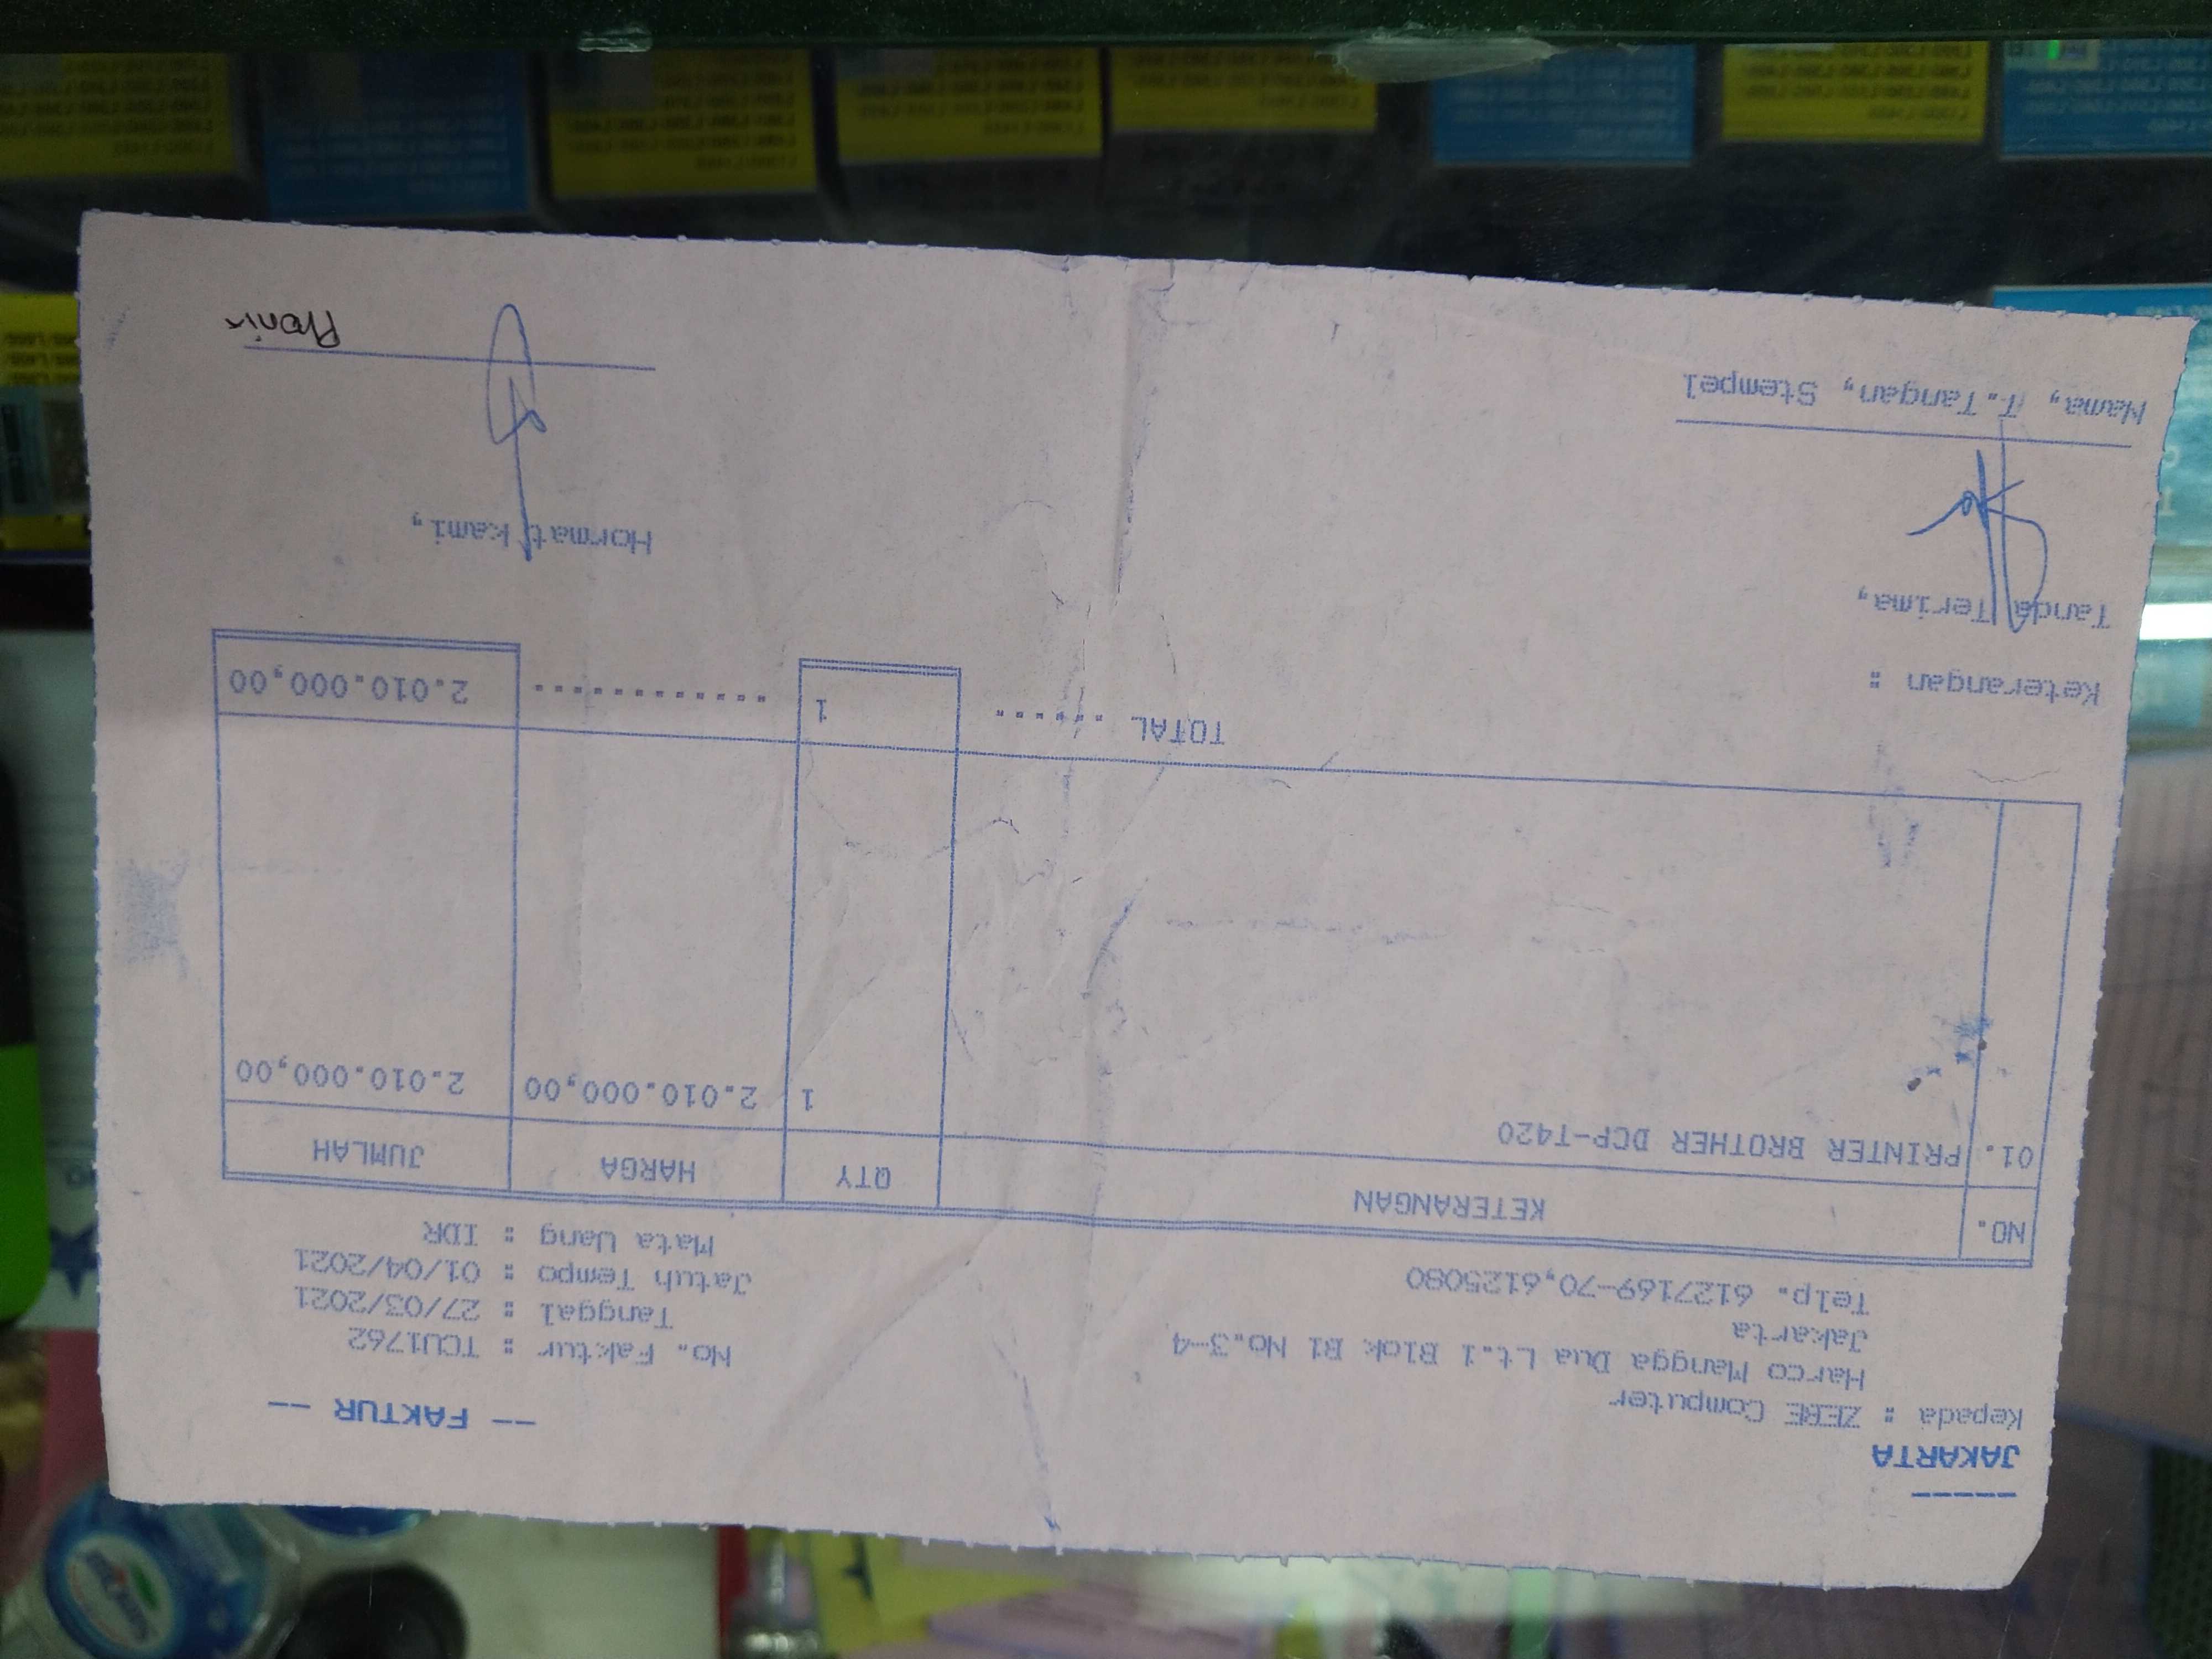 JAKARTA
Kepada : ZEBE Computer
Harco Mangga Dua Lt.1 Blok B1 No.3-4
Jakarta
Telp. 6127169-70,6125080
-- FAKTUR --
No. Faktur : TCU1762
Tanggal : 27/03/2021
Jatuh Tempo : 01/04/2021
Mata Uang : IDR
NO. KETERANGAN QTY HARGA JUMLAH
01. PRINTER BROTHER DCP-T420 1 2.010.000,00 2.010.000,00
TOTAL ...... 1 ............. 2.010.000,00
Keterangan :
Tanda Terima,
Hormat kami,
Nama, T.Tangan, Stempel